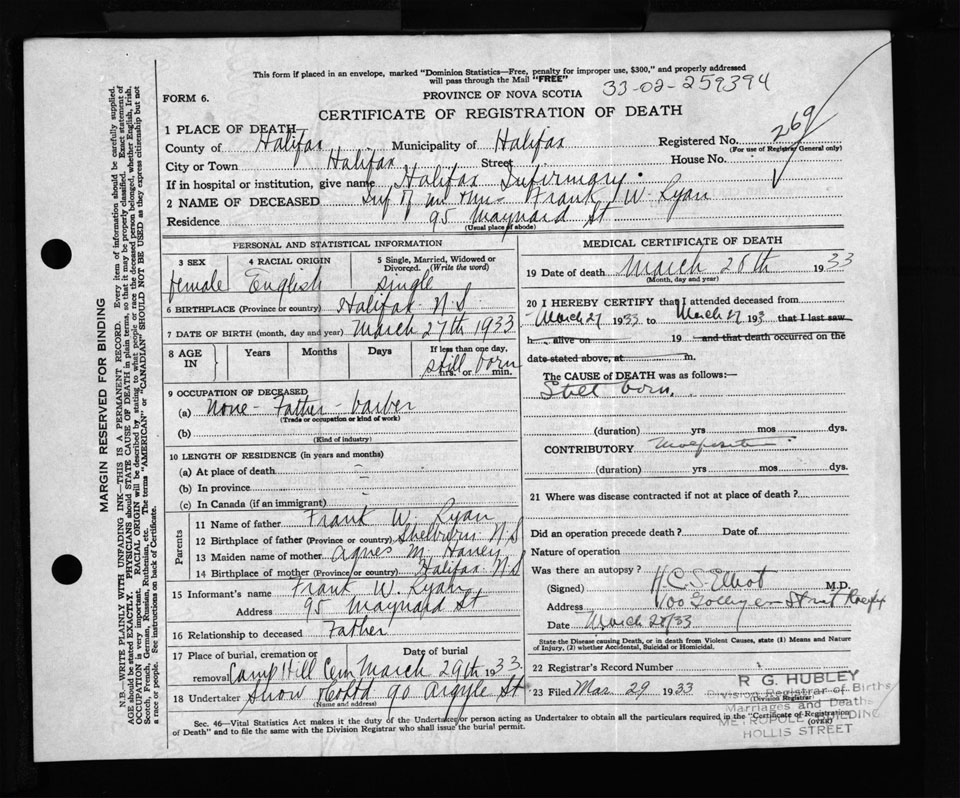 This form if placed in an envelope, marked "Dominion Statistics—Free, penalty for improper use, $300," and properly addressed
will pass through the Mail "FREE"
33-02-259394
FORM 6.
PROVINCE OF NOVA SCOTIA
CERTIFICATE OF REGISTRATION OF DEATH
1 PLACE OF DEATH—
County of Halifax Municipality of Halifax Registered No. 269
(For use of Registrar General only)
City or Town Halifax Street House No.
If in hospital or institution, give name Halifax Infirmary.
2 NAME OF DECEASED Inf of Mr + Mrs Frank W. Ryan
Residence 95 Maynard St
(Usual place of abode)
PERSONAL AND STATISTICAL INFORMATION
3 SEX 4 RACIAL ORIGIN 5 Single, Married, Widowed or
Divorced. (Write the word)
female English single
6 BIRTHPLACE (Province or country) Halifax N.S.
7 DATE OF BIRTH (month, day and year) March 27th 1933
8 AGE IN Years Months Days If less than one day,
still born
hrs. or min.
9 OCCUPATION OF DECEASED
(a) None - Father - barber
(Trade or occupation or kind of work)
(b)
(Kind of industry)
10 LENGTH OF RESIDENCE (in years and months)
(a) At place of death
(b) In province
(c) In Canada (if an immigrant)
Parents
11 Name of father Frank W. Ryan
12 Birthplace of father (Province or country) Shelburn N.S
13 Maiden name of mother Agnes M.
14 Birthplace of mother (Province or country) Halifax N.S
15 Informant's name Frank W. Ryan
Address 95 Maynard St
16 Relationship to deceased Father
17 Place of burial, cremation or Date of burial
removal Camp Hill Cem March 29th 1933
18 Undertaker Snow 90 Argyle St
(Name and address)
MEDICAL CERTIFICATE OF DEATH
19 Date of death March 28th 1933
(Month, day and year)
20 I HEREBY CERTIFY that I attended deceased from
March 27 1933 to March 27 193 that I last saw
h alive on 19 and that death occurred on the
date stated above, at m.
The CAUSE of DEATH was as follows:—
Still born.
(duration) yrs mos dys.
CONTRIBUTORY
(duration) yrs mos dys.
21 Where was disease contracted if not at place of death?
Did an operation precede death? Date of
Nature of operation
Was there an autopsy?
(Signed) H.C.S. Elliot M.D.
Address 100
Date March 28/33
State the Disease causing Death, or in death from Violent Causes, state (1) Means and Nature
of Injury, (2) whether Accidental, Suicidal or Homicidal.
22 Registrar's Record Number
23 Filed Mar 29 1933
(Division Registrar)
R G. HUBLEY
Division Registrar of Births
Marriages and Deaths
METROPOLE BUILDING
HOLLIS STREET
Sec. 46—Vital Statistics Act makes it the duty of the Undertaker or person acting as Undertaker to obtain all the particulars required in the "Certificate of Registration
of Death" and to file the same with the Division Registrar who shall issue the burial permit.
(OVER)
MARGIN RESERVED FOR BINDING
N.B.—WRITE PLAINLY WITH UNFADING INK—THIS IS A PERMANENT RECORD. Every item of information should be carefully supplied.
AGE should be stated EXACTLY. PHYSICIANS should STATE CAUSE OF DEATH in plain terms, so that it may be properly classified. Exact statement of
OCCUPATION is very important. RACIAL ORIGIN will be described by stating to what people or race the deceased person belonged, whether English, Irish,
Scotch, French, German, Russian, Ruthenian, etc. The terms "AMERICAN" or "CANADIAN" SHOULD NOT BE USED as they express citizenship but not
a race or people. See instructions on back of Certificate.